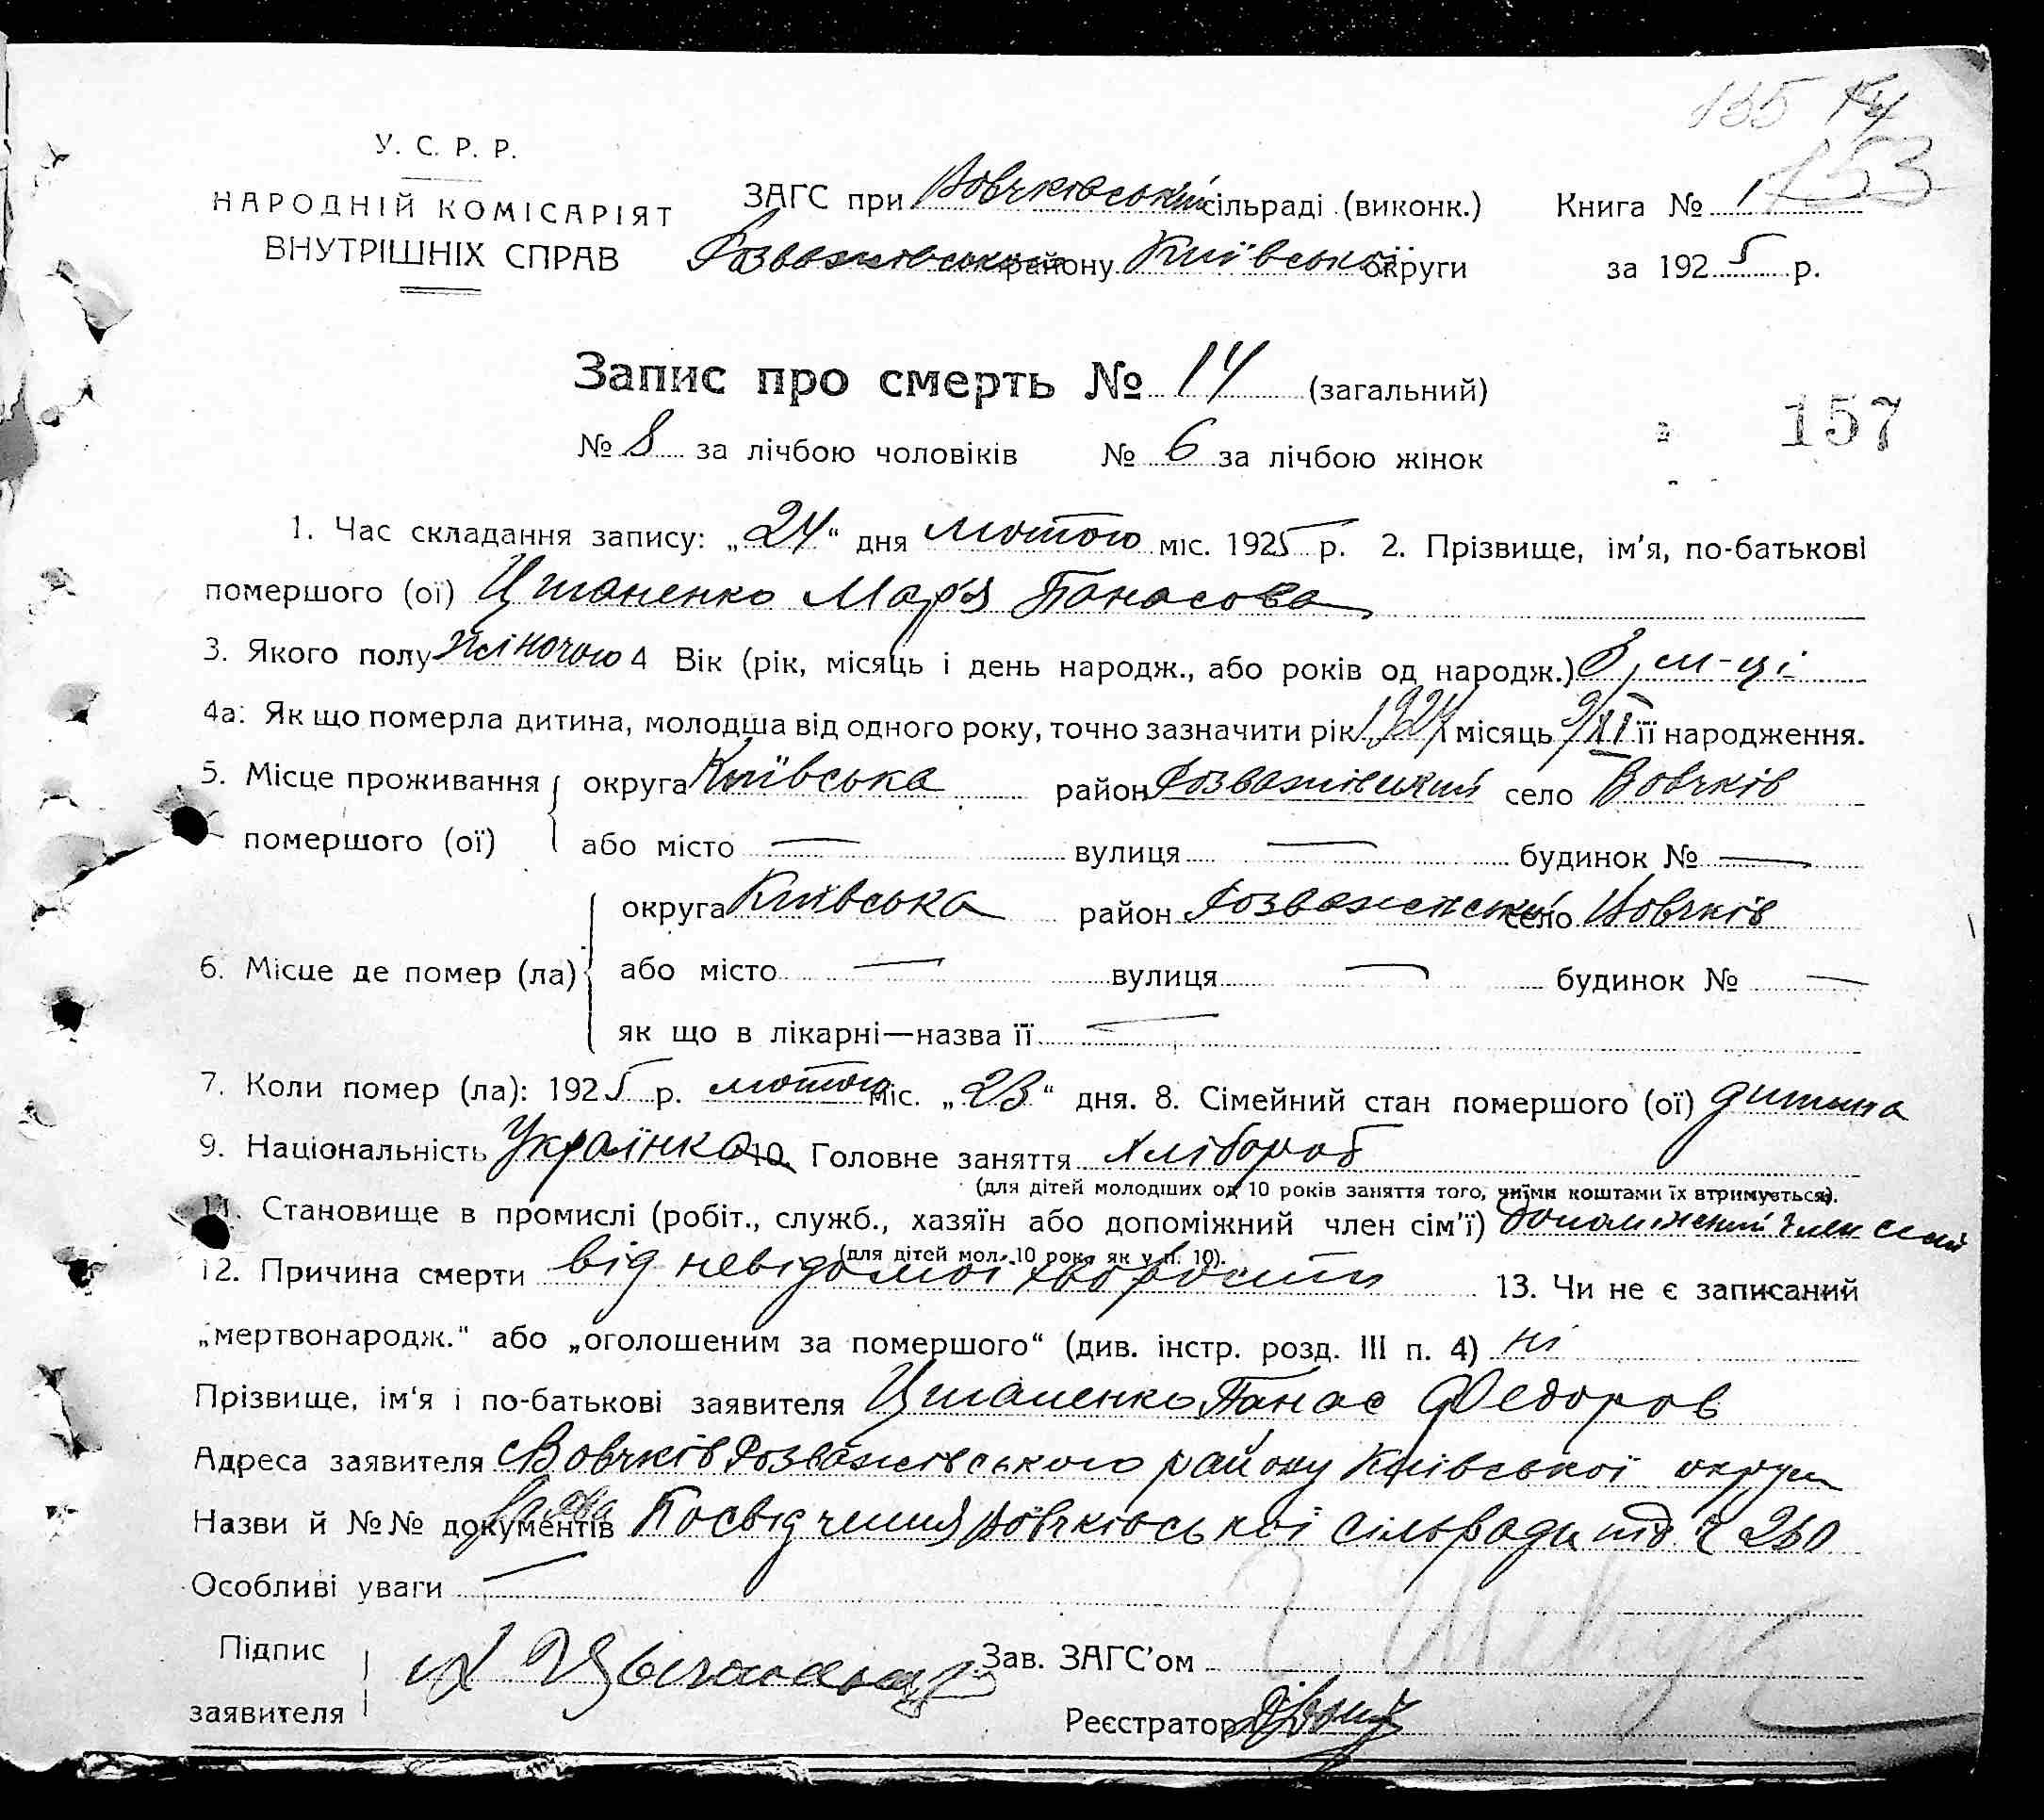 135
153
У. С. Р. Р.
НАРОДНІЙ КОМІСАРІЯТ
ВНУТРІШНІХ СПРАВ
ЗАГС при Вовчківський сільраді (виконк.) Книга № 1
Розважівського району Київської округи за 1925 р.
Запис про смерть № 14 (загальний)
157
№ 8 за лічбою чоловіків № 6 за лічбою жінок
1. Час складання запису: „24“ дня лютого міс. 1925 р. 2. Прізвище, ім’я, по-батькові
помершого (ої) Цитаненко Мар'я Панасова
3. Якого полу жіночого 4 Вік (рік, місяць і день народж., або років од народж.) 3, м-ці
4а: Як що померла дитина, молодша від одного року, точно зазначити рік 1924 місяць 9/XI її народження.
5. Місце проживання округа Київська район Розважівський село Вовчків
помершого (ої) або місто — вулиця — будинок № —
округа Київська район село Вовчків
6. Місце де помер (ла) або місто — вулиця — будинок № —
як що в лікарні—назва її —
7. Коли помер (ла): 1925 р. лютого міс. „23“ дня. 8. Сімейний стан помершого (ої) дитина
9. Національність Українка 10. Головне заняття хлібороб
(для дітей молодших од 10 років заняття того, чиїми коштами їх втримується).
11. Становище в промислі (робіт., служб., хазяїн або допоміжний член сім’ї) допоміжний член сімї
(для дітей мол. 10 рок. як у п. 10).
12. Причина смерти від невідомої хворости 13. Чи не є записаний
„мертвонародж.“ або „оголошеним за помершого“ (див. інстр. розд. III п. 4) ні
Прізвище, ім‘я і по-батькові заявителя Панас Федоров
Адреса заявителя с Вовчків Розважівського району Київської округи
Назви й №№ документів Посвідчення Вовчківської сільради під ч 260
Особливі уваги —
Підпис
заявителя
Зав. ЗАГС’ом
Реєстратор